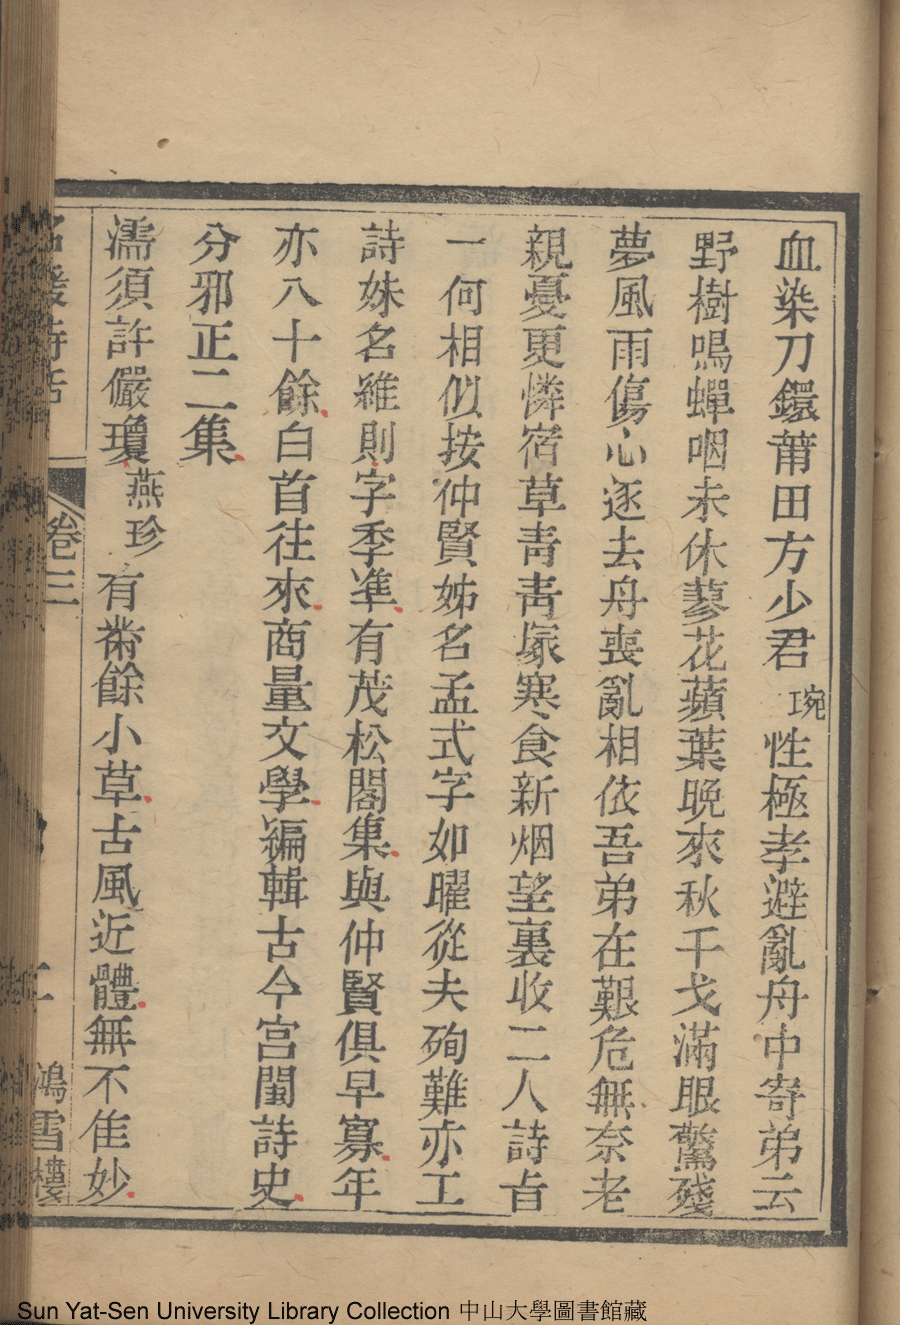 血染刀鐶莆田方少君琬性極孝避亂舟中寄弟云
野樹鳴蟬咽未休蓼花蘋葉晚來秋干戈滿眼驚殘
夢風雨傷心逐去舟喪亂相依吾弟在艱危無奈老
親憂更憐宿草靑靑塚寒食新烟望裏收二人詩旨
一何相似按仲賢姊名孟式字如曜從夫殉難亦工
詩妹名維則字季準有茂松閣集與仲賢俱早寡年
亦八十餘白首往來商量文學編輯古今宫閨詩史
分邪正二集
濡須許儼瓊燕珍有黹餘小草古風近體無不隹妙
名媛詩話 卷三 二 鴻雪樓
Sun Yat-Sen University Library Collection 中山大學圖書館藏